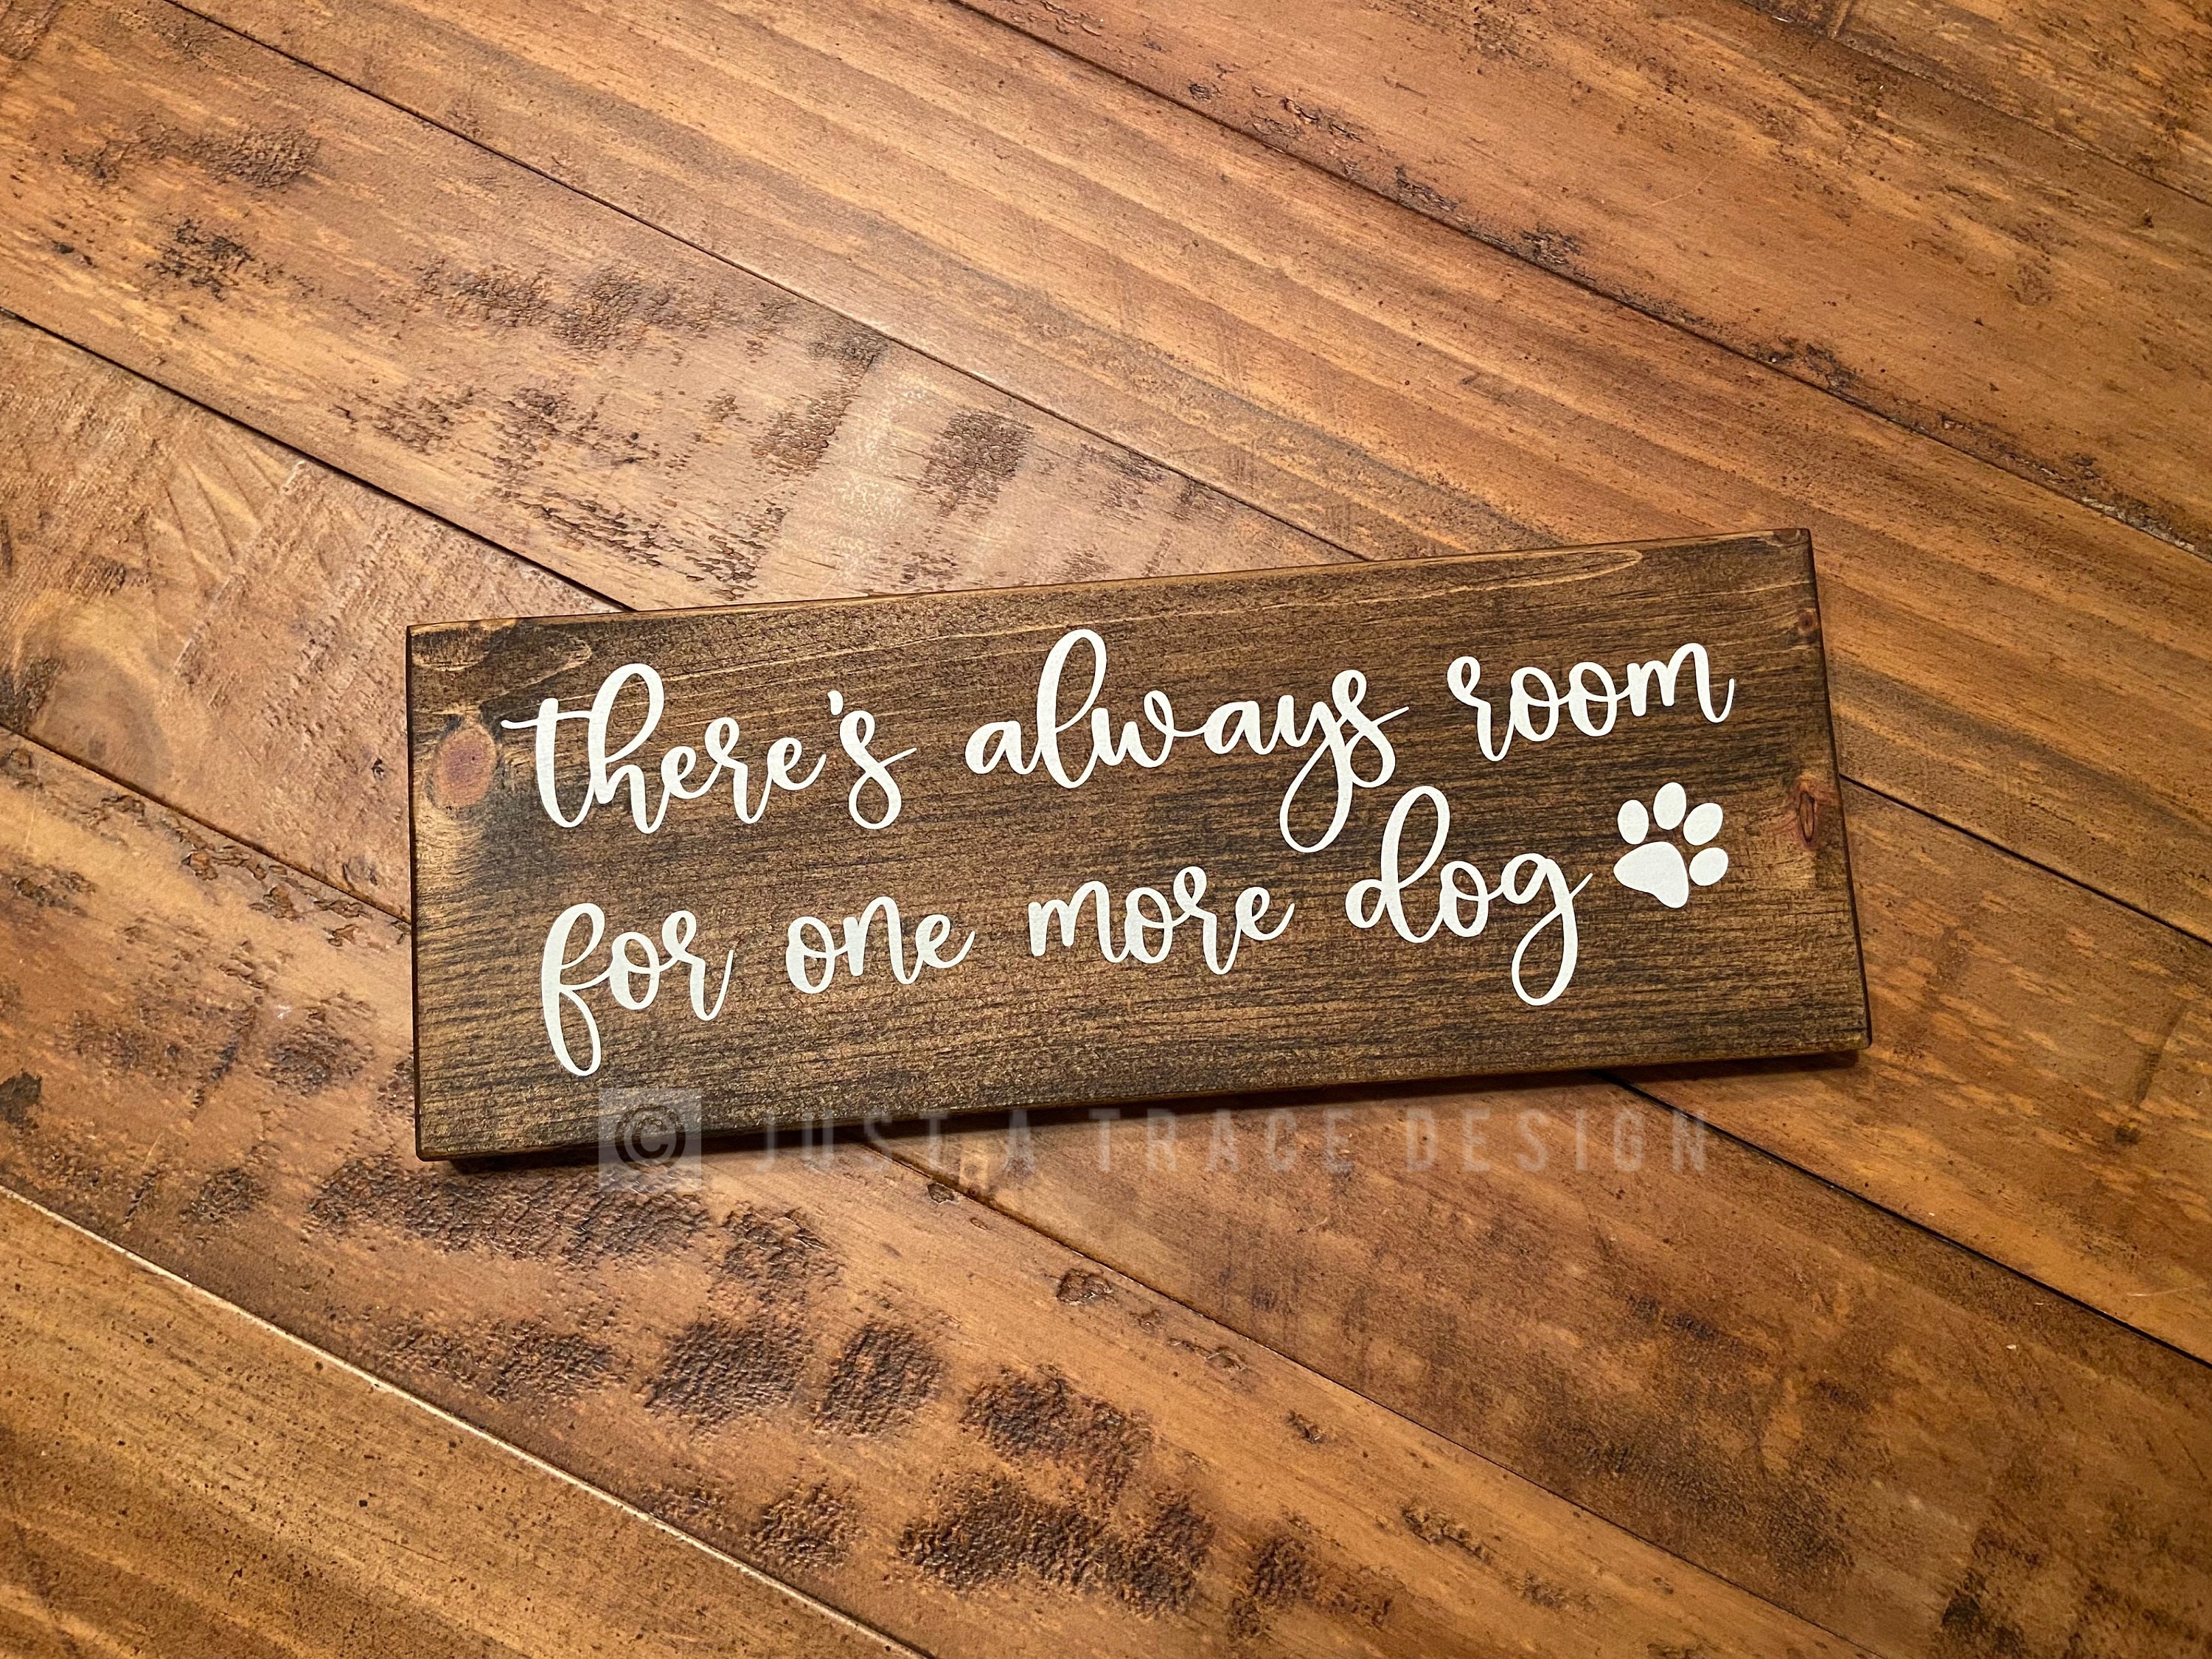 there's always room
for one more dog
© JUST A TRACE DESIGN